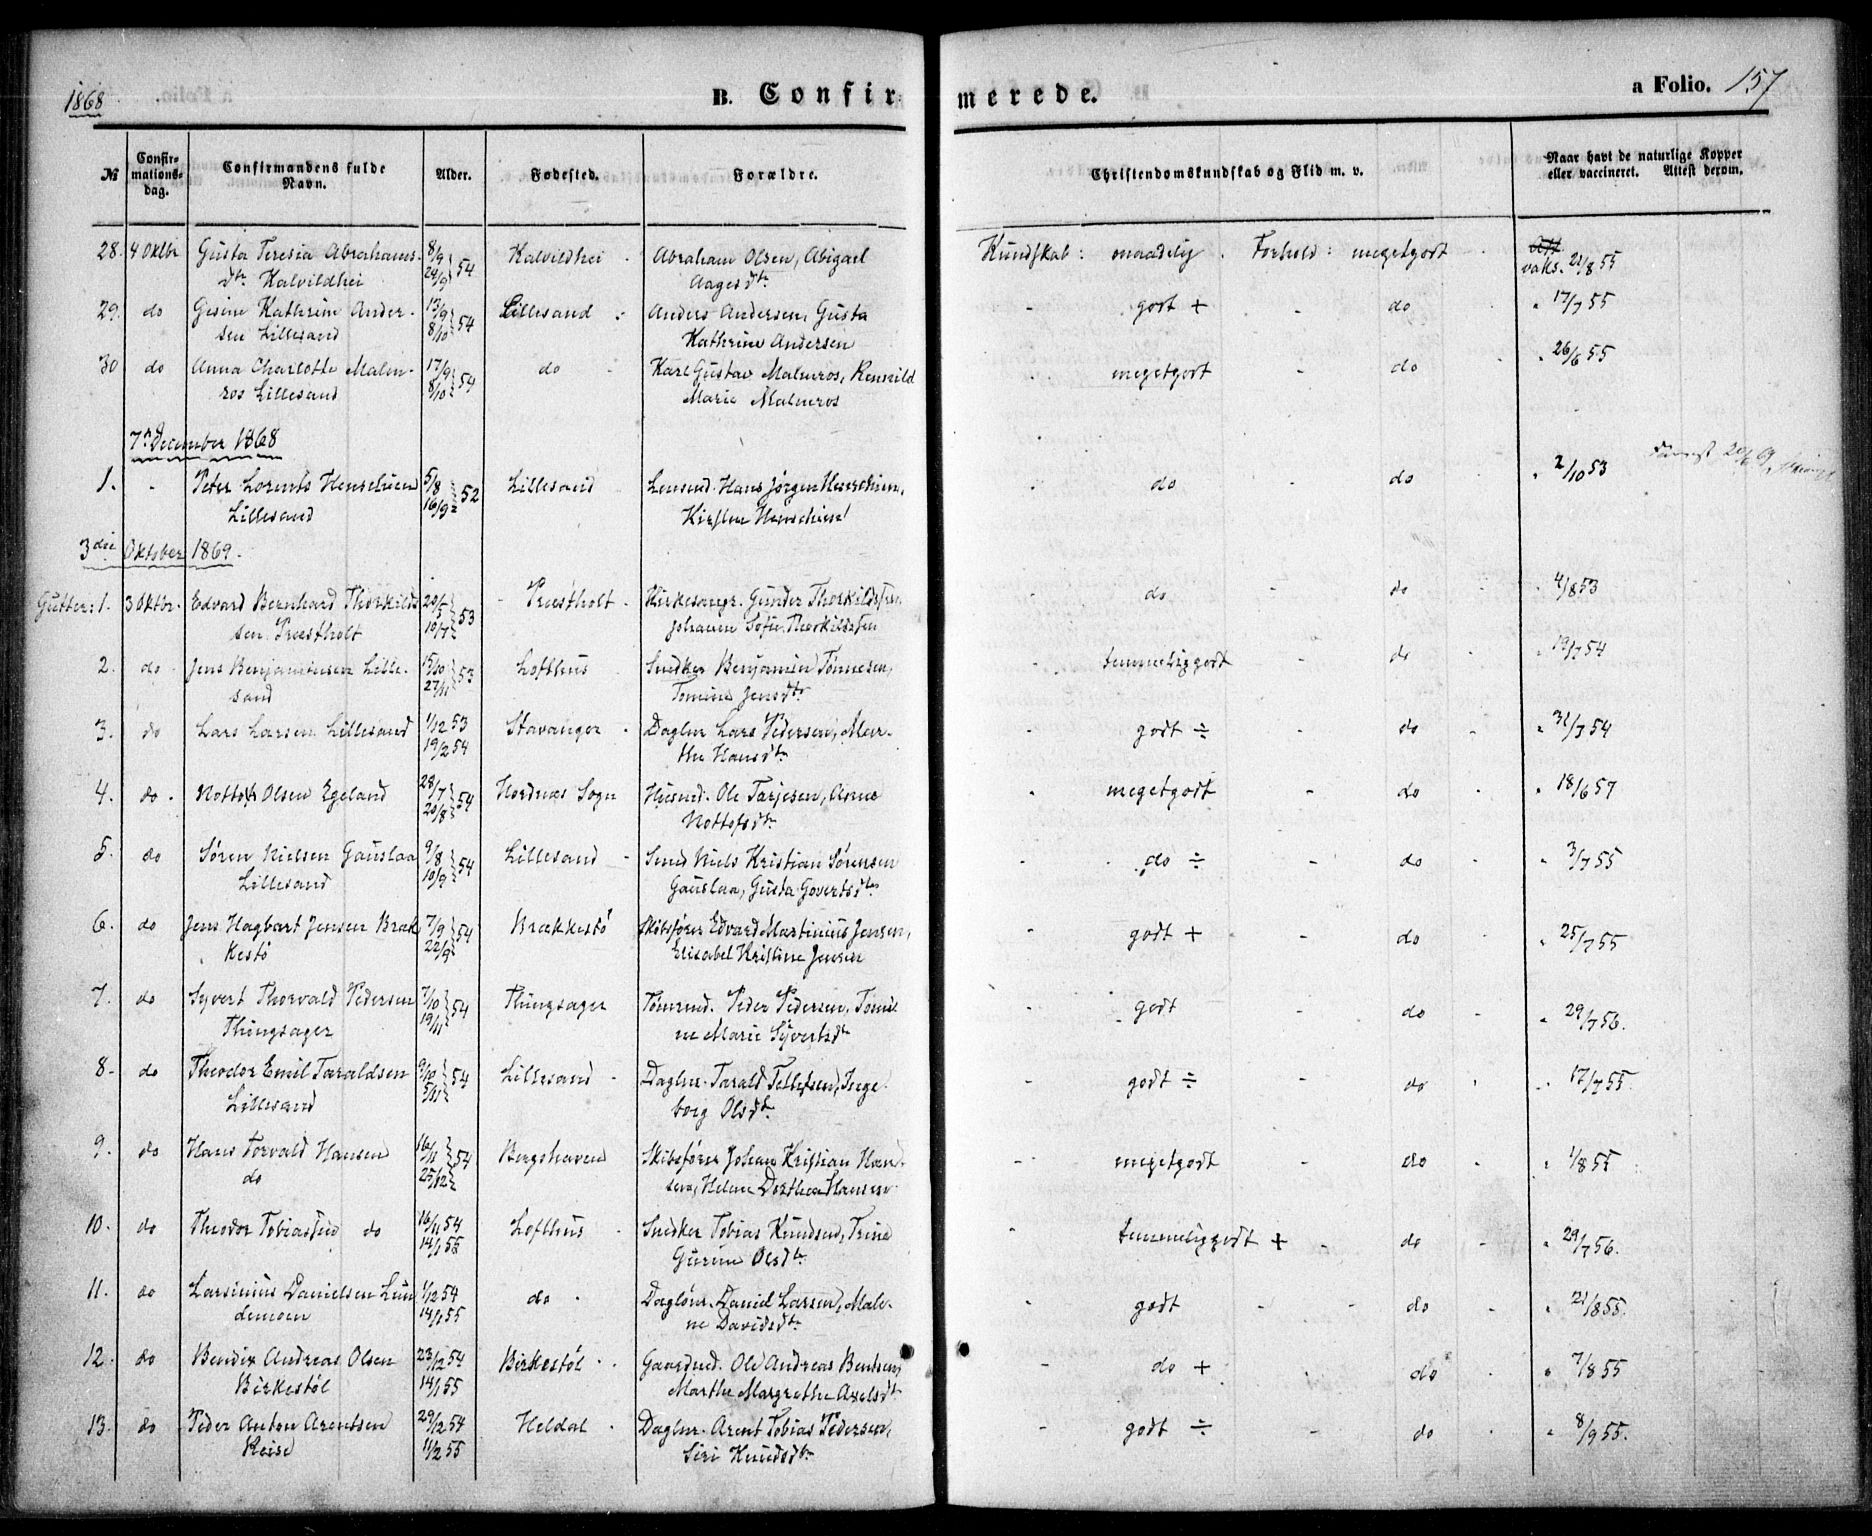 1868
B. Confirmerede.
a Folio. 157
№
Confirmationsdag.
Confirmandens fulde Navn.
Alder.
Fødested.
Forældre.
Christendomskundskab og Flid m. v.
Naar havt de naturlige Kopper eller vaccineret. Attest derom.
28. 4 Oktbr Gusta Teresia Abrahams- 8/9 24/9 } 54 Kalvildhei Abraham Olsen, Abigael Kundskab: maadelig. Forhold: megetgodt vaks. 21/8 55
dtr. Kalvildhei Aagesdtr
29. do Gesine Kathrine Ander- 13/9 8/10 } 54 Lillesand Anders Andersen, Gusta - godt + - do " 17/7 55
sen Lillesand Kathrine Andersen
30 do Anna Charlotte Malm- 17/9 8/10 } 54 do Karl Gustav Malmros, - megetgodt - do " 26/6 55
ros Lillesand Marie Malmros
7de December 1868
1. - Peter Lorents Henschien 5/8 16/9 } 52 Lillesand Hans Jørgen Henschien, - do do " 2/10 53
Lillesand Kirsten Henschien
3die Oktober 1869.
Gutter: 1. 3 Oktbr. Edvard Bernhard Thorkilds 53 Præstholt Kirkesangr. Gunder Thorkildsen - do - do 4/8 53
sen Præstholt Johanne Sofie Thorkildsen
2. do Jens Benjaminsen Lille- 15/10 27/11 } 53 Lofthus Snedker Benjamin Tønnesen, - temmeliggodt - do " 19/7 54
sand Tomine Jensdtr
3. do Lars Larsen Lillesand 1/12 53 Stavanger Daglnr Lars Pedersen, Mar- - godt ÷ - do " 31/7 54
19/2 54 the Hansdtr
4. do. Olsen Egeland 28/7 20/8 } 54 Hordnæs Sogn Husmd. Ole Tarjesen, - megetgodt - do " 18/6 57
Nottofsdtr
5. do Søren Nielsen Gauslaa 9/8 10/9 } 54 Lillesand Smed Niels Kristian Sørensen - do ÷ - do " 3/7 55
Lillesand Gauslaa, Gusta Govertsdtr
6. do Jens Hagbart Jensen Bræk 7/9 22/9 } 54 Brækkestø Skibsfører Edvard Martinius Jensen, - godt + - do " 25/7 55
kestø Elisabet Kristine Jensen
7. do Syvert Thorvald Pedersen 7/10 19/11 } 54 Thingsager Tømmd. Peder Pedersen, Tomi - godt - do " 29/7 56.
Thingsager ne Marie Syvertsdtr
8. do Theodor Emil Taraldsen 9/10 5/11 } 54 Lillesand Daglnr. Tarald Tellefsen, Inge - godt ÷ - do " 17/7 55.
Lillesand borg Olsdtr.
9. do Hans Torvald Hansen 16/11 25/12 } 54 Bergshaven Skibsfører Johan Kristian Han- - megetgodt do " 1/8 55
do sen, Helene Dorthea Hansen
10. do Theodor Tobiassen do 16/11 54 Lofthus Snedker Tobias Knudsen, Trine - temmeliggodt + - do " 29/7 56.
14/1 55 Gurine Olsdtr
11. do Larsinius Danielsen Lun 1/12 54 do Daglønr. Daniel Larsen, Male- - godt - do " 21/8 55.
demoen 14/1 55 ne Davidsdtr
12. do Bendix Andreas Olsen 23/12 54 Birkestøl Gaardmd. Ole Andreas Bentsen, - do + do " 7/8 55
Birkestøl 14/1 55 Marthe Margrethe Axelsdtr
13. do Peder Anton Arentsen 29/12 54 Heldal Daglnr. Arent Tobias Pedersen, - godt ÷ - do " 8/9 55.
11/2 55 Siri Knudsdtr